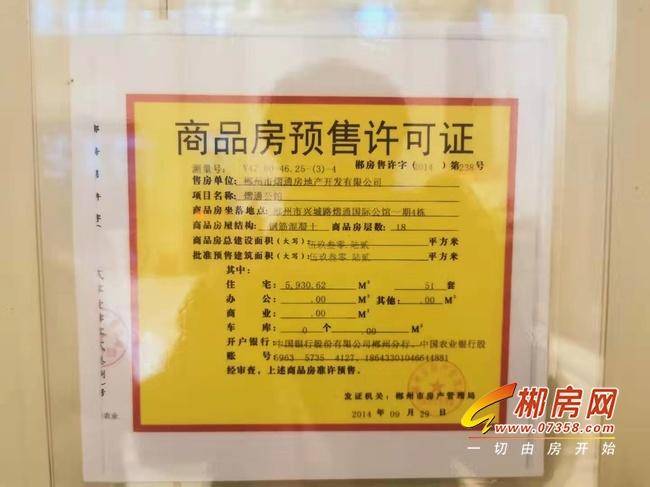 商品房预售许可证
测量号: Y47.60-46.25-(3)-4 郴房售许字(2014)第238号
售房单位: 郴州市熠通房地产开发有限公司
项目名称: 熠通公馆
商品房坐落地点: 郴州市兴城路熠通国际公馆一期4栋
商品房屋结构: 钢筋混凝土 商品房层数: 18
商品房总建设面积(大写): 伍玖叁零.陆贰 平方米
批准预售建筑面积(大写): 伍玖叁零.陆贰 平方米
其中:
住 宅: 5,930.62 M² 51 套
办 公: .00 M² 其他: .00 M²
商 业: .00 M²
车 库: 0 个 .00 M²
开户银行: 中国银行股份有限公司郴州分行、中国农业银行股
账 号 5963 5735 4127、18643301046644881
经审查,上述商品房准许预售。
发证机关: 郴州市房产管理局
2014 年 09 月 29 日
郴房网
www.07358.com
一切由房开始